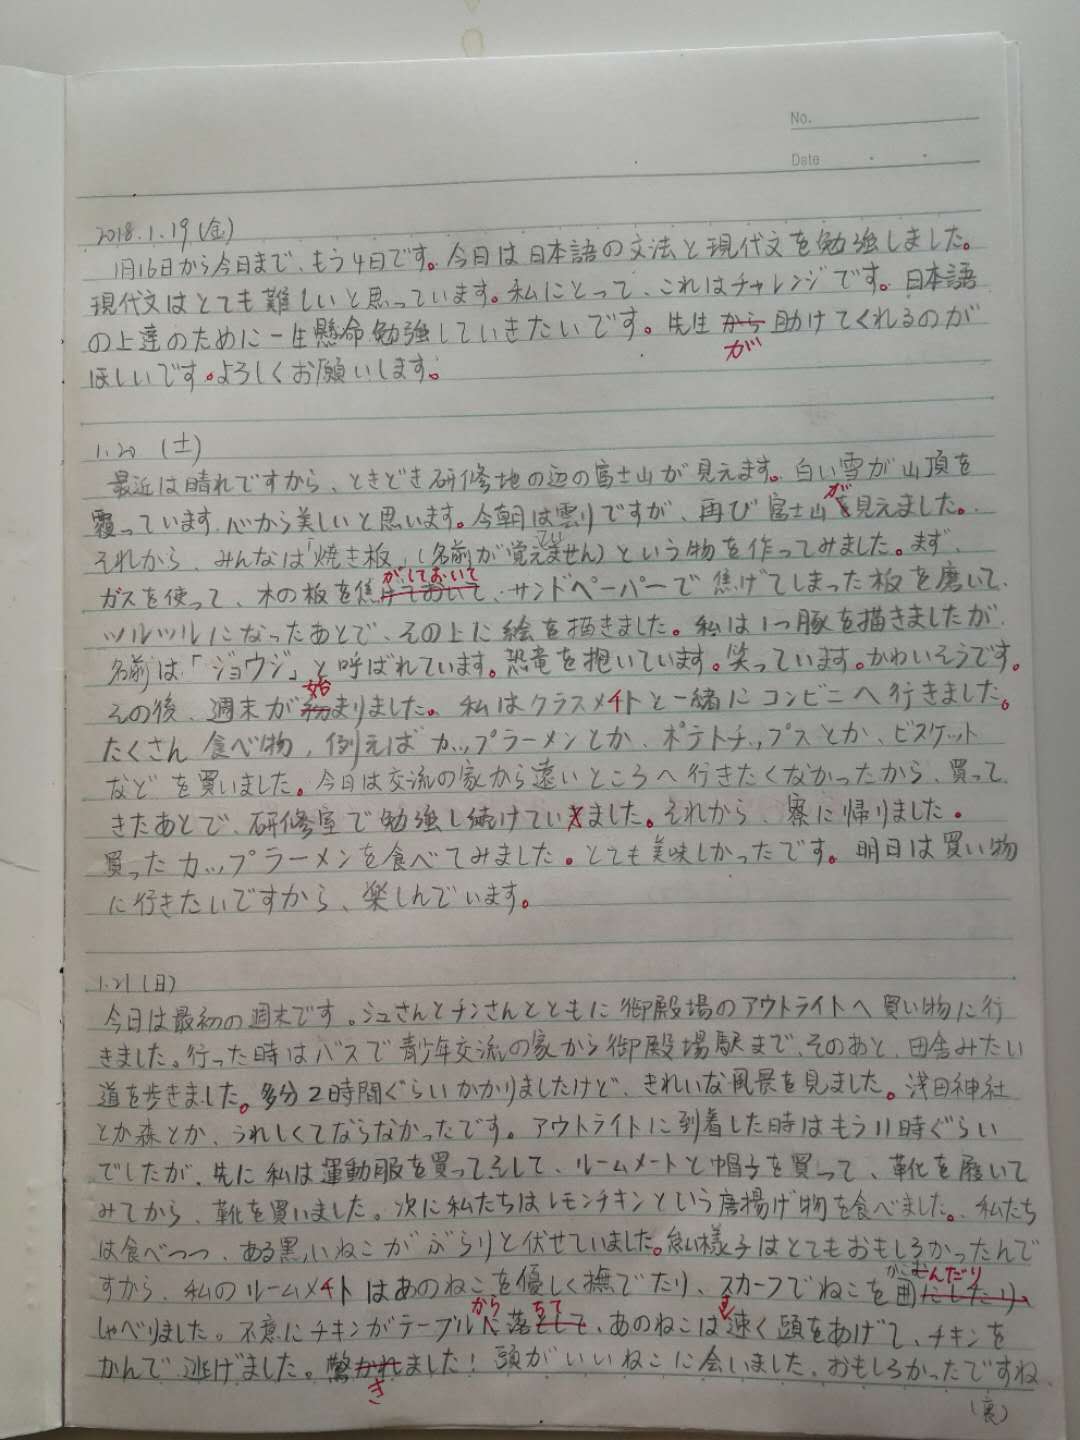 No.
Date
2018.1.19(金)
1月16日から今日まで、もう4日です。今日は日本語の文法と現代文を勉強しました。
現代文はとても難しいと思っています。私にとって、これはチャレンジです。日本語
の上達のために一生懸命勉強していきたいです。先生から助けてくれるのが
が
ほしいです。よろしくお願いします。
1.20 (土)
最近は晴れですから、ときどき研修地の辺の富士山が見えます。白い雪が山頂を
覆っています、心から美しいと思います。今朝は雲りですが、再び富士山が見えました。
それから、みんなは「焼き板」(名前が覚えていません)という物を作ってみました。まず、
がしておいて
ガスを使って、木の板を焦げておいて、サンドペーパーで焦げてしまった板を磨いて、
ツルツルになったあとで、その上に絵を描きました。私は1つ豚を描きましたが、
名前は「ジョウジ」と呼ばれています。恐竜を抱いています。笑っています。かわいそうです。
始
その後、週末が初まりました。私はクラスメイトと一緒にコンビニへ行きました。
たくさん食べ物、例えばカップラーメンとか、ポテトチップスとか、ビスケット
などを買いました。今日は交流の家から遠いところへ行きたくなかったから、買って
きたあとで、研修室で勉強し続けていきました。それから、寮に帰りました。
買ったカップラーメンを食べてみました。とても美味しかったです。明日は買い物
に行きたいですから、楽しんでいます。
1.21(日)
今日は最初の週末です。シュさんとチンさんとともに御殿場のアウトライトへ買い物に行
きました。行った時はバスで青少年交流の家から御殿場駅まで、そのあと、田舎みたい
道を歩きました。多分2時間ぐらいかかりましたけど、きれいな風景を見ました。浅田神社
とか森とか、うれしくてならなかったです。アウトライトに到着した時はもう11時ぐらい
でしたが、先に私は運動服を買ってそして、ルームメートと帽子を買って、靴を履いて
みてから、靴を買いました。次に私たちはレモンチキンという唐揚げ物を食べました。私たち
は食べつつ、ある黒いねこがぶらりと伏せていました。様子はとてもおもしろかったんで
かこむんだり
すから、私のルームメイトはあのねこを優しく撫でたり、スカーフでねこを囲にしたり、
から ちて す
しゃべりました。不意にチキンがテーブルに落として、あのねこは速く頭をあげて、チキンを
かんで逃げました。驚かれました!頭がいいねこに会いました、おもしろかったですね。
き
(裏)